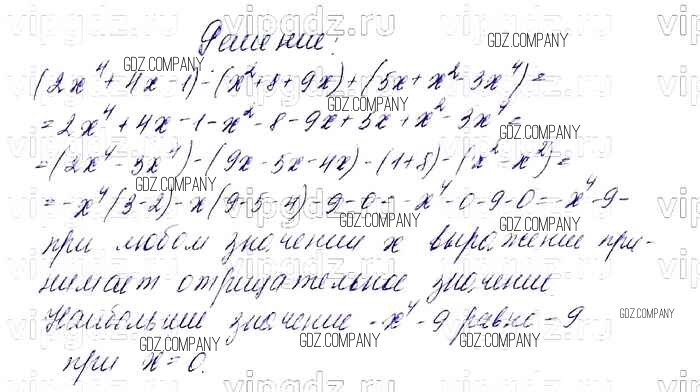 Решение:
(2x⁴+4x-1)-(x²+8+9x)+(5x+x²-3x⁴)=
=2x⁴+4x-1-x²-8-9x+5x+x²-3x⁴=
=(2x⁴-3x⁴)-(9x-5x-4x)-(1+8)-(x²-x²)=
=-x⁴(3-2)-x(9-5-4)-9-0=-x⁴-0-9-0=-x⁴-9-
при любом значении x выражение при-
нимает отрицательное значение
Наибольшее значение -x⁴-9 равно -9
при x=0.
GDZ.COMPANY
vipgdz.ru